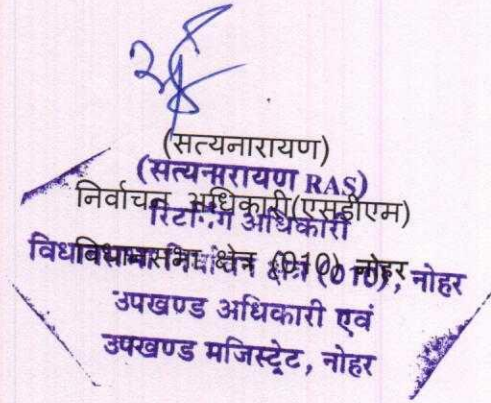 (सत्यनारायण)
(सत्यनारायण RAS)
निर्वाचन अधिकारी(एसडीएम)
रिटर्निंग अधिकारी
विधानसभा क्षेत्र (010) नोहर
विधानसभा क्षेत्र (010), नोहर
उपखण्ड अधिकारी एवं
उपखण्ड मजिस्ट्रेट, नोहर